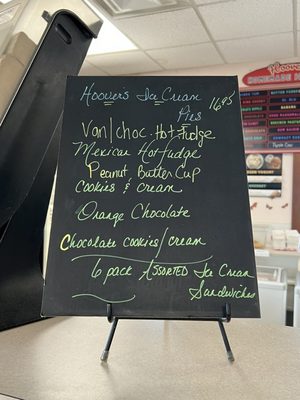 Hoovers Ice Cream
Pies 16.95
Van/choc. Hot Fudge
Mexican Hotfudge
Peanut Butter Cup
Cookies & Cream
Orange Chocolate
Chocolate cookies/cream
6 pack Assorted Ice Cream
Sandwiches